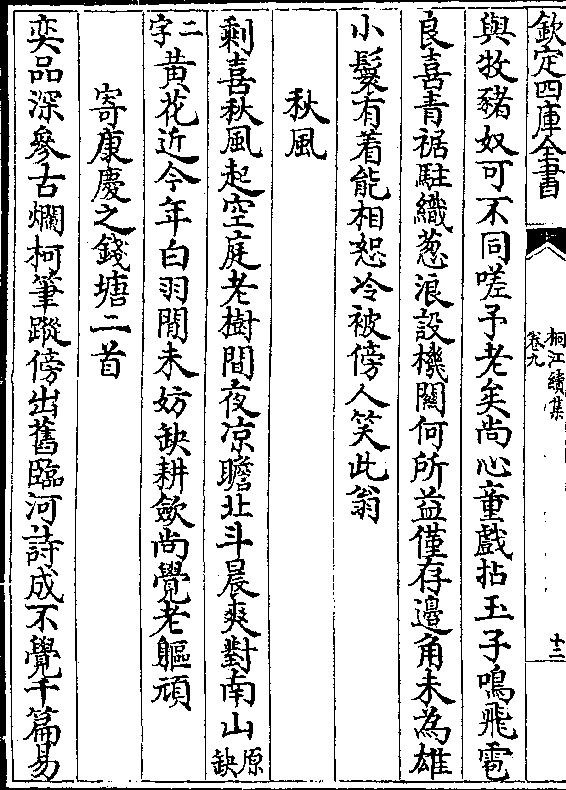 欽定四庫全書
桐江續集
卷九
十二
與牧豬奴可不同嗟予老矣尚心童戲拈玉子鳴飛雹
良喜青裾駐織葱浪設機關何所益僅存邉角未為雄
小鬟有着能相恕冷被傍人笑此翁
秋風
剩喜秋風起空庭老樹間夜凉瞻北斗晨爽對南山原缺
二字黄花近今年白羽閒未妨缺耕歛尚覺老軀頑
寄康慶之錢塘二首
奕品深參古爛柯筆蹤傍出舊臨河詩成不覺千篇易